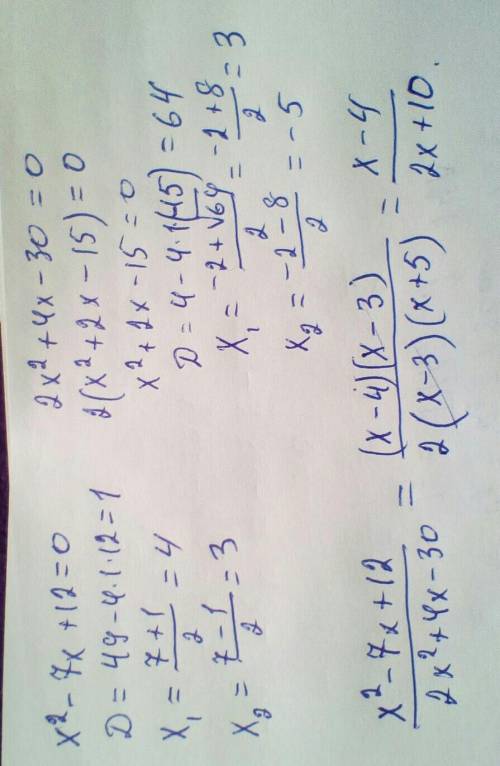 x² - 7x + 12 = 0
D = 49 - 4·1·12 = 1
x₁ = (7+1)/2 = 4
x₂ = (7-1)/2 = 3
2x² + 4x - 30 = 0
2(x² + 2x - 15) = 0
x² + 2x - 15 = 0
D = 4 - 4·1·(-15) = 64
x₁ = (-2+√64)/2 = (-2+8)/2 = 3
x₂ = (-2-8)/2 = -5
(x² - 7x + 12)/(2x² + 4x - 30) = ((x-4)(x-3))/(2(x-3)(x+5)) = (x-4)/(2x+10).